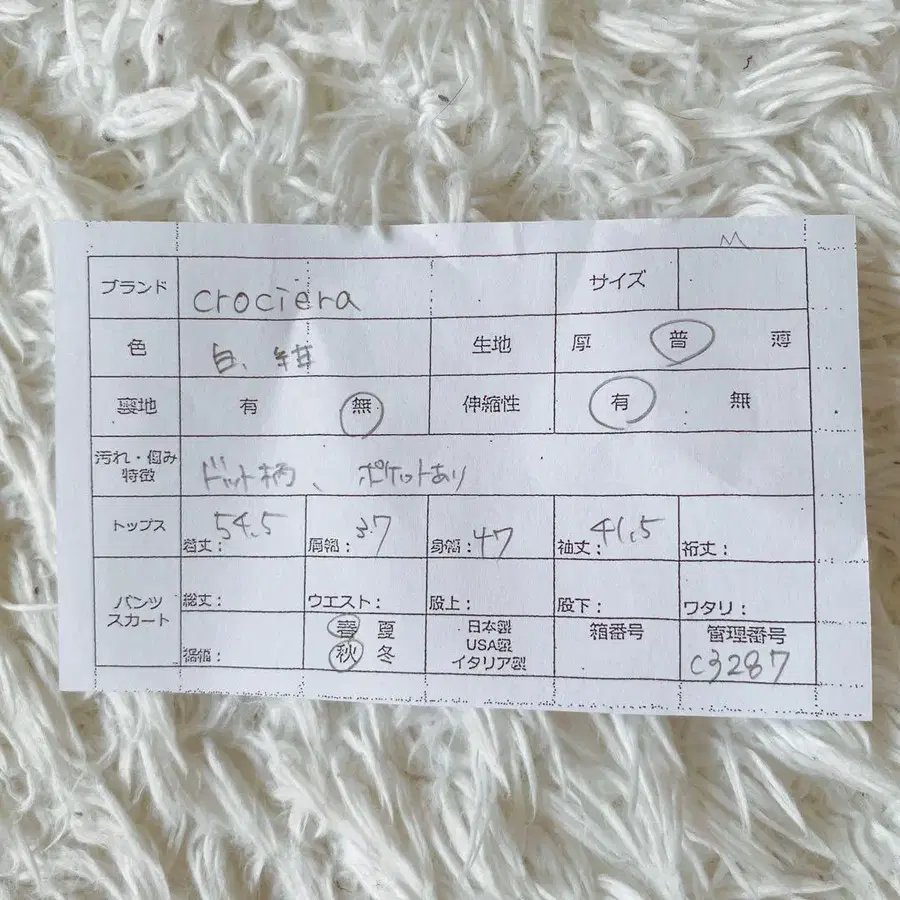 M
ブランド crociera サイズ
色 白、紺 生地 厚 普 薄
裏地 有 無 伸縮性 有 無
汚れ・傷み ドット柄、ポケットあり
特徴
トップス 着丈: 54.5 肩幅: 37 身幅: 47 袖丈: 41.5 裄丈:
パンツ 総丈: ウエスト: 股上: 股下: ワタリ:
スカート 裾幅: 春 夏 日本製 箱番号 管理番号
秋 冬 USA製 C3287
イタリア製